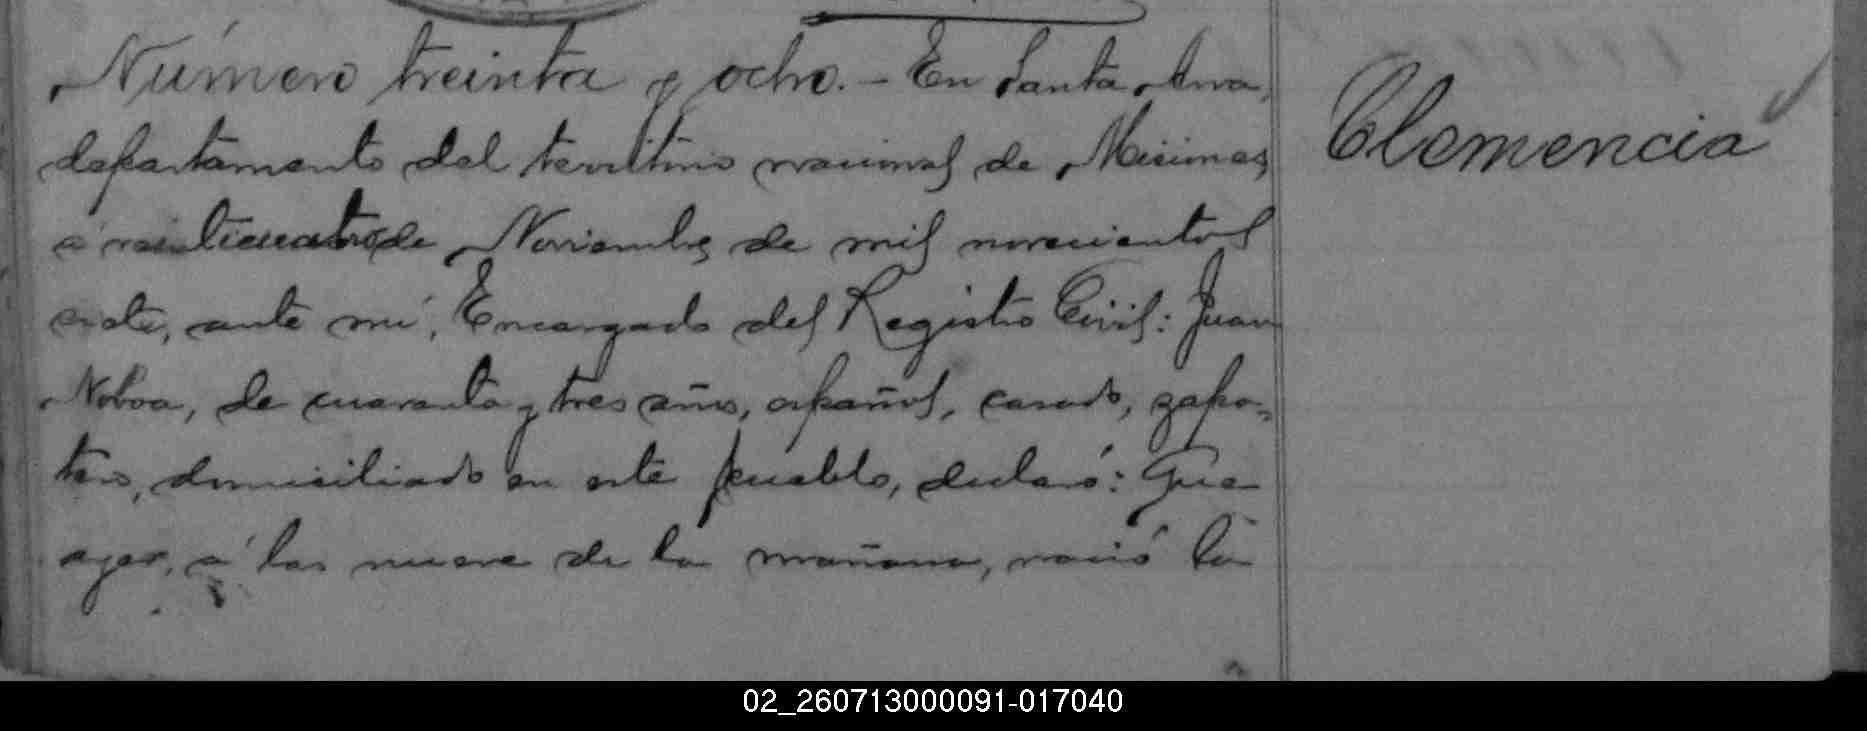 Número treinta y ocho. - En Santa Ana,
departamento del territorio nacional de Misiones,
a veinticuatro de Noviembre de mil novecientos
siete, ante mí, Encargado del Registro Civil: Juan
Novoa, de cuarenta y tres años, español, casado, zapa-
tero, domiciliado en este pueblo, declaró: Que
ayer, á las nueve de la mañana, nació la
Clemencia
02_260713000091-017040